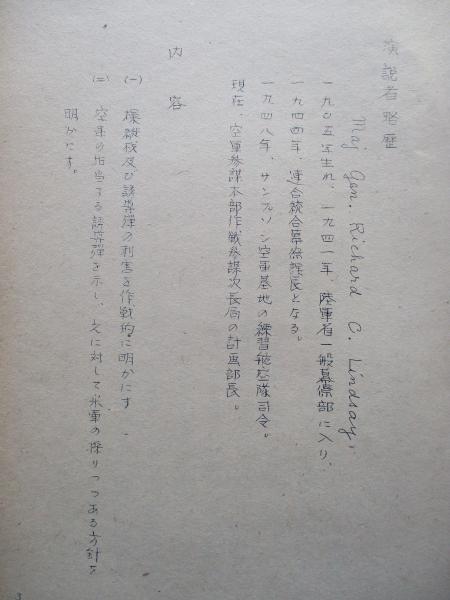 演説者略歴
Maj. Gen. Richard C. Lindsay,
一九〇五年生れ、一九四一年、陸軍省一般幕僚部に入り、
一九四四年、連合統合幕僚課長となる。
一九四八年、サンプソン空軍基地の練習航空隊司令。
現在、空軍参謀本部作戦参謀次長局の計画部長。
内容
(一) 操縦機及び誘導弾の利害を作戦的に明かにす
(二) 空軍の担当する誘導弾を示し、之に対して米軍の採りつつある方針を
明かにす。
3